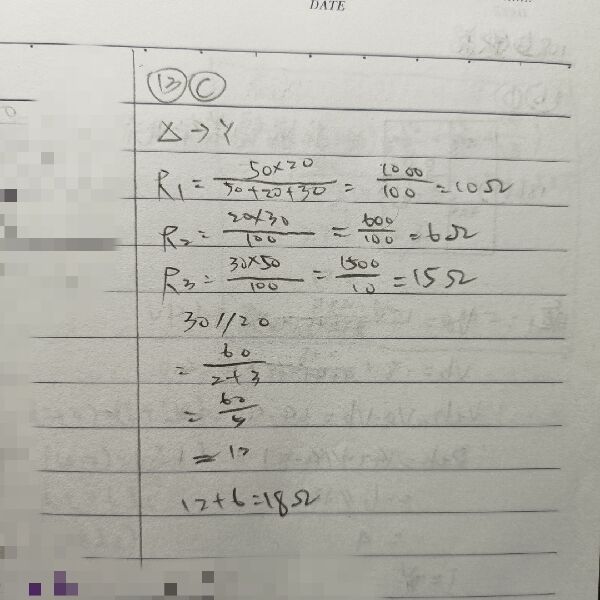 DATE
13 C
Δ → Y
R1 = 50×20 / 50+20+30 = 1000 / 100 = 10Ω
R2 = 20×30 / 100 = 600 / 100 = 6Ω
R3 = 30×50 / 100 = 1500 / 10 = 15Ω
30//20
= 60 / 2+3
= 60 / 5
= 12
12+6=18Ω